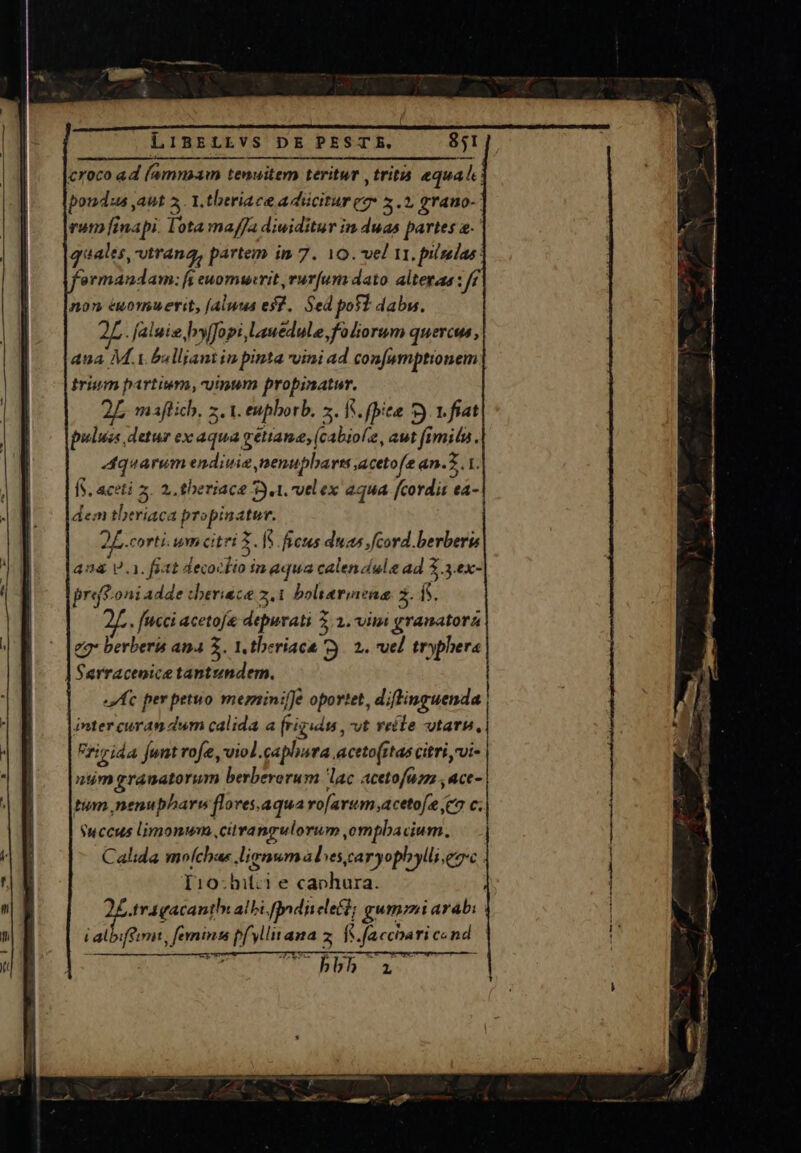 LIBELLVS DE PESTE. 851
croco ad summam tenuitem teritur, tritis æquale
pondus, aut ʒ. 1. theriacæ adiicitur & ʒ. 2. grano-
rum sinapi. Tota massa diuiditur in duas partes æ-
quales, vtranq; partem in 7. 10. vel 11. pilulas
formandam: si euomuerit, rursum dato alteras: si
non euomuerit, saluus est. Sed post dabis.
♃. saluiæ, hyssopi, Lauēdulæ, foliorum quercus,
ana M. 1. bulliant in pinta vini ad consumptionem
trium partium, vinum propinatur.
♃. mastich. ʒ. 1. euphorb. ʒ. ß. spicæ ℈. 1. fiat
puluis, detur ex aqua gētianæ, scabiosæ, aut similis.
Aquarum endiuiæ, nenupharis, acetosæ an. ℥. 1.
ß. aceti ʒ. 2. theriacæ ℈. 1. vel ex aqua scordii ea-
dem theriaca propinatur.
♃. corti. um citri ℥. ß. ficus duas, scord. berberis
ana ℣. 1. fiat decoctio in aqua calendulæ ad ℥. 3. ex-
pressioni adde theriacæ ʒ. 1 boliarmenæ ʒ. ß.
♃. succi acetosæ depurati ℥. 2. vini granatorū
& berberis ana ℥. 1. theriacæ ℈. 2. vel tryphera
Sarracenicæ tantundem.
Ac perpetuo meminisse oportet, distinguenda
inter curandum calida a frigidis, vt recte vtaris.
Frigida sunt rosæ, viol. caphura, acetositas citri, vi-
num granatorum berberorum lac acetosum, ace-
tum, nenupharis flores, aqua rosarum, acetosæ, & c.
Succus limonum, citrangulorum, omphacium.
Calida moschus, lignum aloes, caryophylli, & c
Tro.hisci e caphura.
♃. tragacanthi albi, spodii elect; gummi arabi
i albissimi, seminis psyllii ana ʒ. ß. sacchari cand
bbb 2